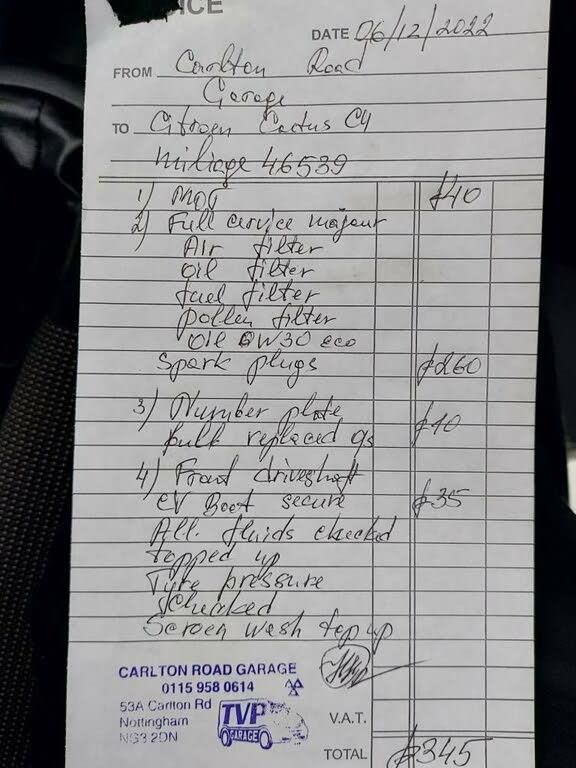 ICE
DATE 06/12/2022
FROM Carlton Road
Garage
TO Citroen Cactus C4
Miliage 46539
1) MOT £40
2) Full cervice majour
Air filter
oil filter
fuel filter
pollen filter
oil 0W30 eco
Spark plugs £260
3) Number plate
bulb replaced £10
4) Front driveshaft
CV Boot secure £35
All fluids checked
topped up
Tyre pressure
checked
Screen wash top up
CARLTON ROAD GARAGE
0115 958 0614
53A Carlton Rd
Nottingham
NG3 2DN
TVP
GARAGE
V.A.T.
TOTAL £345